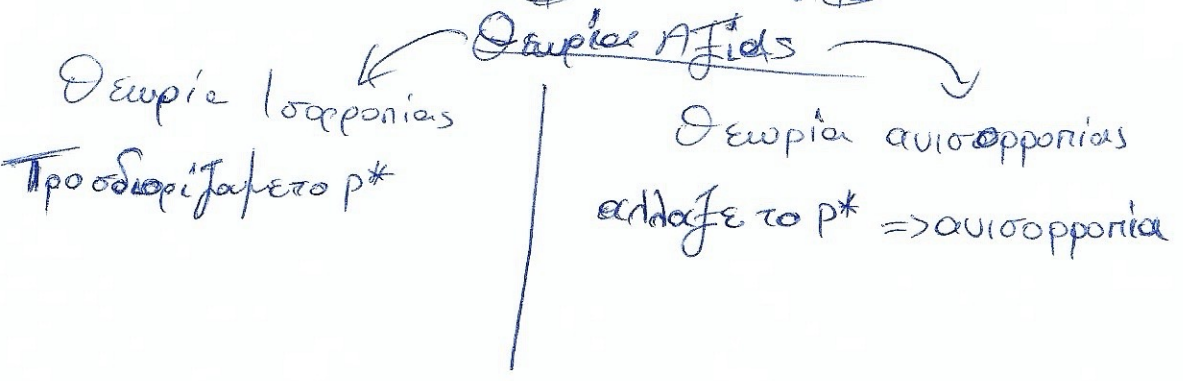 Θεωρία Αξίας
Θεωρία Ισορροπίας
Προσδιορίζαμε το p*
Θεωρία ανισορροπίας
αλλαξε το p* => ανισορροπία